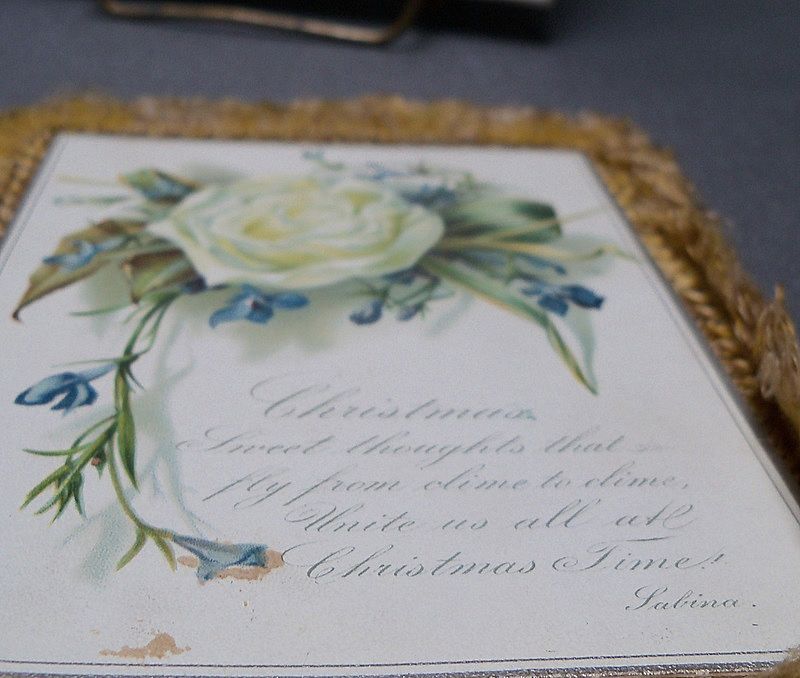 Christmas.
Sweet thoughts that
fly from clime to clime,
Unite us all at
Christmas Time!
Sabina.